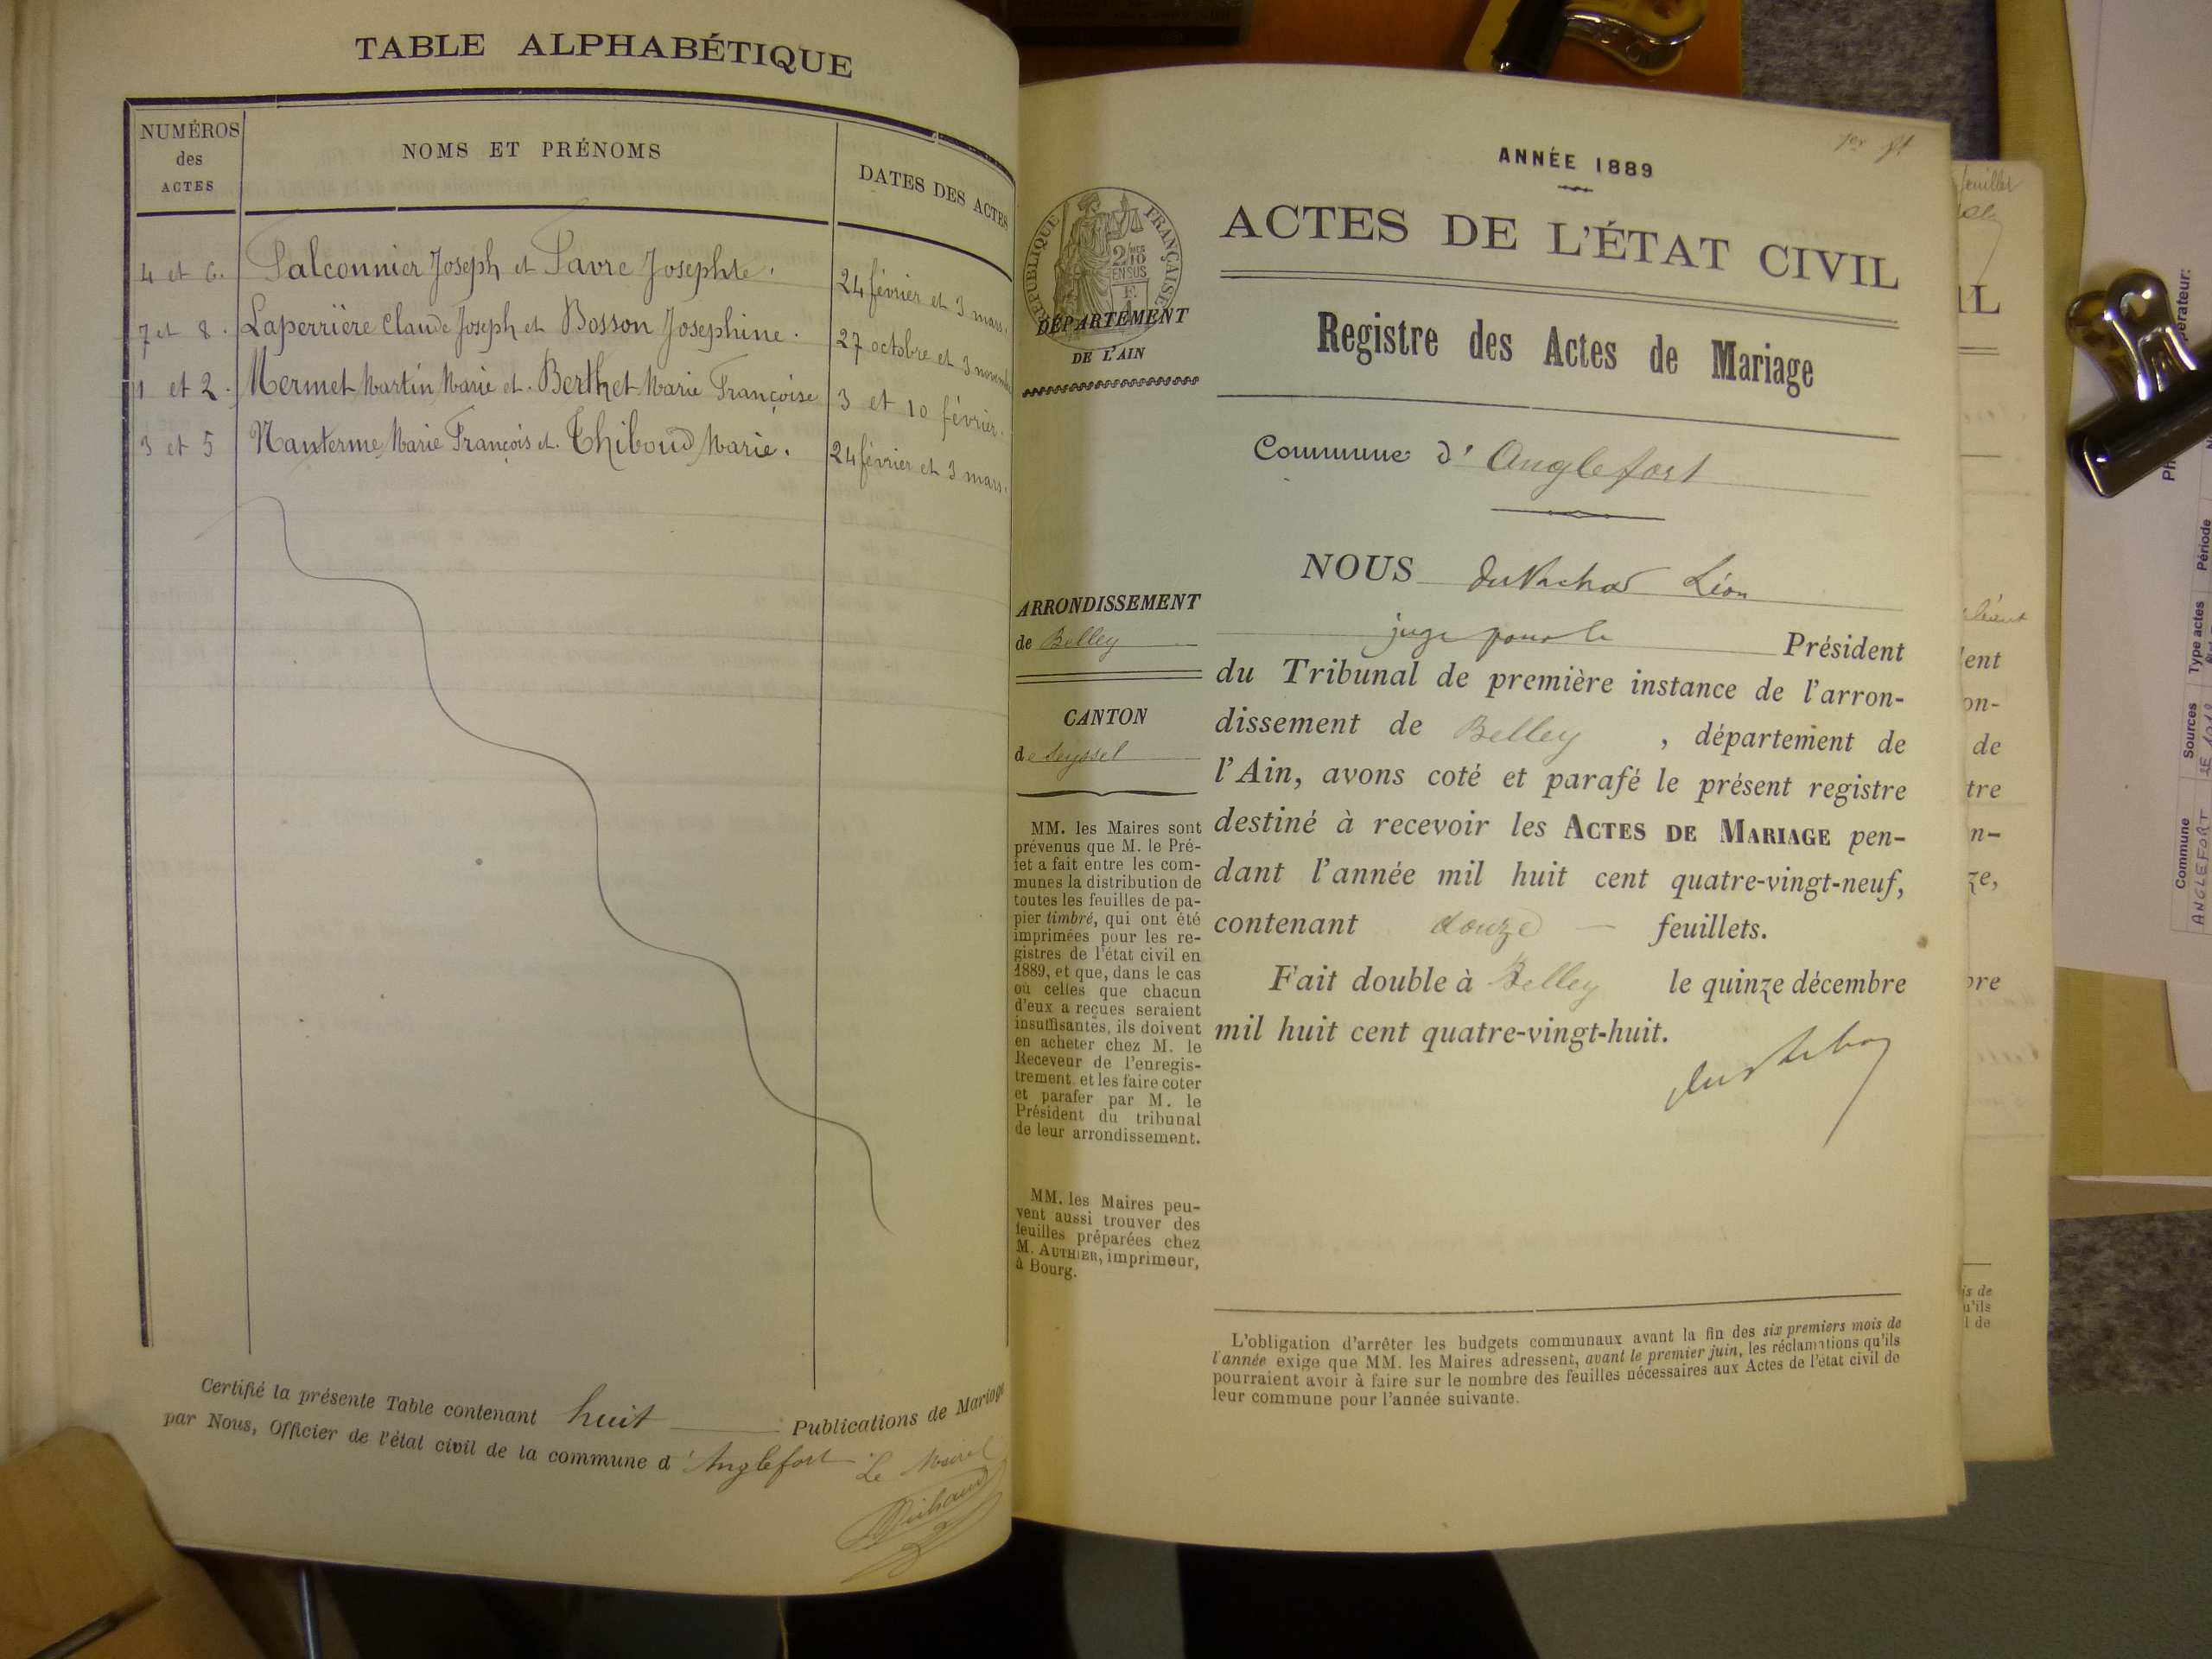 TABLE ALPHABÉTIQUE
NUMÉROS
des
ACTES
NOMS ET PRÉNOMS
DATES DES ACTES
4 et 6. Falconnier Joseph et Favre Josephte. 24 février et 3 mars.
7 et 8. Laperrière Claude Joseph et Bosson Josephine. 27 octobre et 3 novembre
1 et 2. Mermet Martin Marie et Berthet Marie Françoise 3 et 10 février.
3 et 5 Nanterme Marie François et Thiboud Marie. 24 février et 3 mars.
Certifié la présente Table contenant huit Publications de Mariage
par Nous, Officier de l'état civil de la commune d'Anglefort Le Maire
1er ft
ANNÉE 1889
ACTES DE L'ÉTAT CIVIL
RÉPUBLIQUE FRANÇAISE
2/10
EN SUS
DÉPARTEMENT
DE L'AIN
Registre des Actes de Mariage
Commune d'Anglefort
ARRONDISSEMENT
de Belley
CANTON
de Seyssel
MM. les Maires sont
prévenus que M. le Pré-
fet a fait entre les com-
munes la distribution de
toutes les feuilles de pa-
pier timbré, qui ont été
imprimées pour les re-
gistres de l'état civil en
1889, et que, dans le cas
où celles que chacun
d'eux a reçues seraient
insuffisantes, ils doivent
en acheter chez M. le
Receveur de l'enregis-
trement, et les faire coter
et parafer par M. le
Président du tribunal
de leur arrondissement.
MM. les Maires peu-
vent aussi trouver des
feuilles préparées chez
M. AUTHIER, imprimeur,
à Bourg.
NOUS Léon
juge pour le Président
du Tribunal de première instance de l'arron-
dissement de Belley, département de
l'Ain, avons coté et parafé le présent registre
destiné à recevoir les ACTES DE MARIAGE pen-
dant l'année mil huit cent quatre-vingt-neuf,
contenant douze feuillets.
Fait double à Belley le quinze décembre
mil huit cent quatre-vingt-huit.
L'obligation d'arrêter les budgets communaux avant la fin des six premiers mois de
l'année exige que MM. les Maires adressent, avant le premier juin, les réclamations qu'ils
pourraient avoir à faire sur le nombre des feuilles nécessaires aux Actes de l'état civil de
leur commune pour l'année suivante.
feuillet
Commune
ANGLEFORT
Sources
Type actes
Période